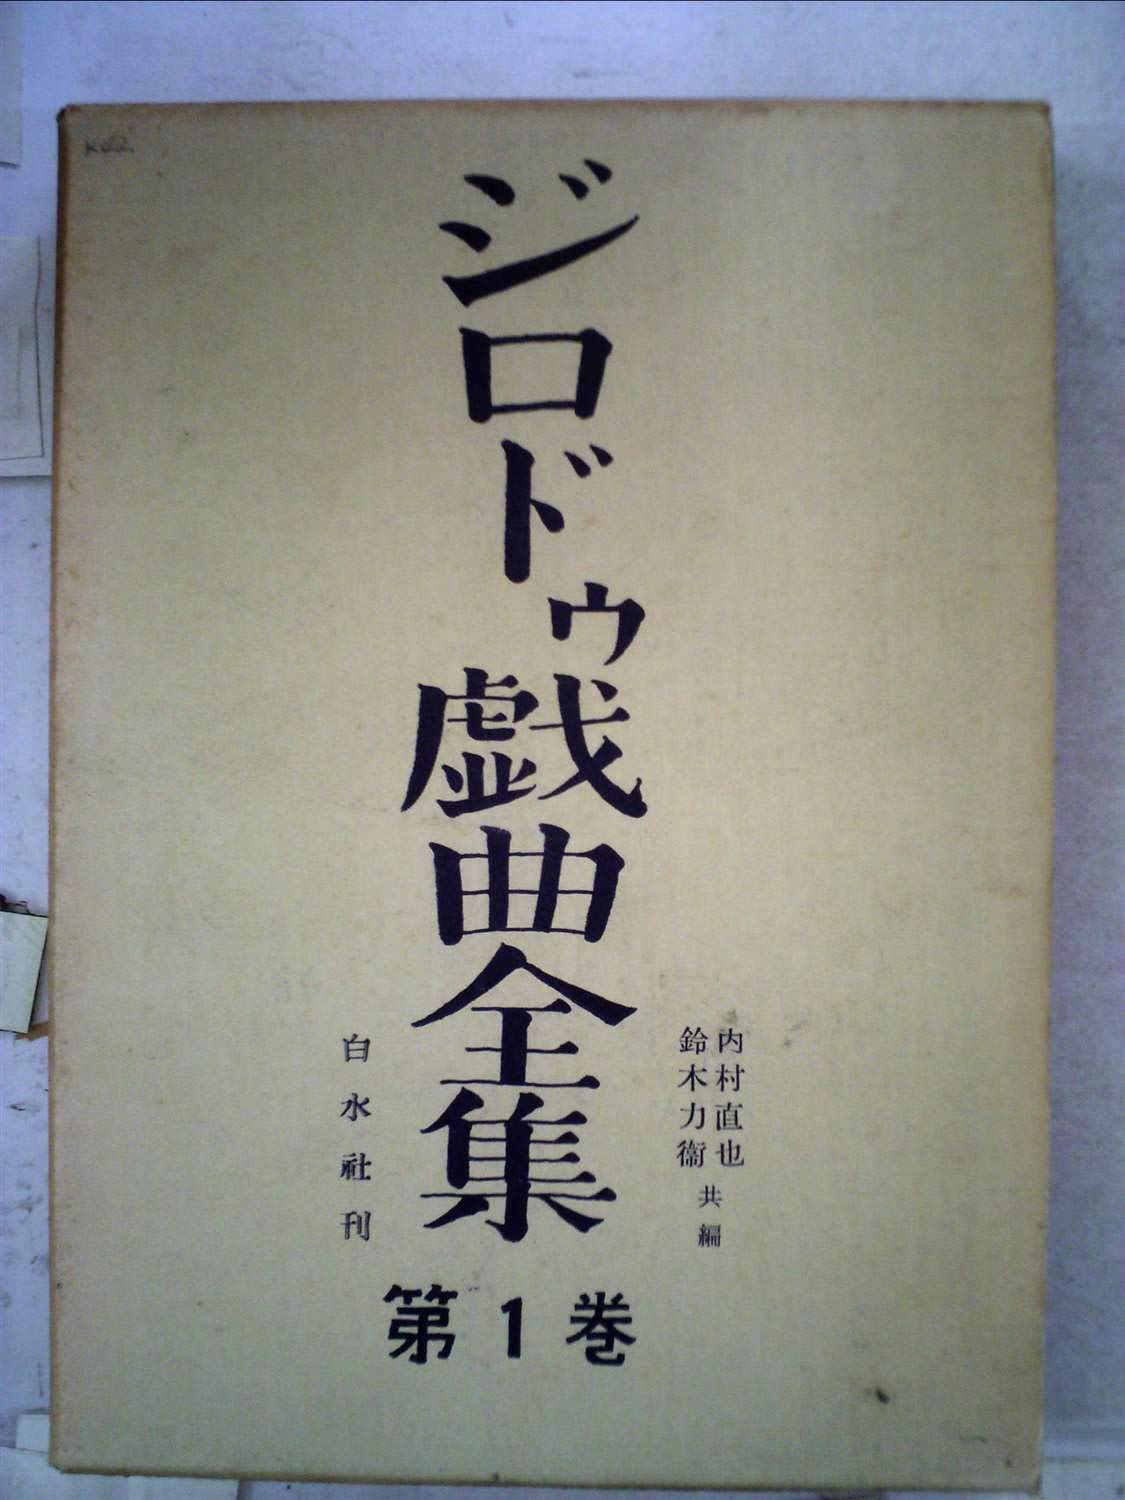 ジロドゥ戯曲全集
第1巻
内村直也
鈴木力衞
共編
白水社刊